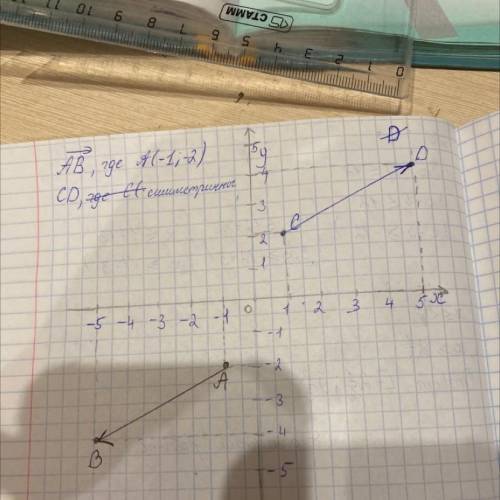 11 10 9 8 7 6 5 4 3 2 1 0
СТАММ
AB, где A(-1;-2)
CD, где симметрично
y
5
D
D
4
3
C
2
1
-5 -4 -3 -2 -1 0 1 2 3 4 5 x
-1
A
-2
-3
B
-4
-5